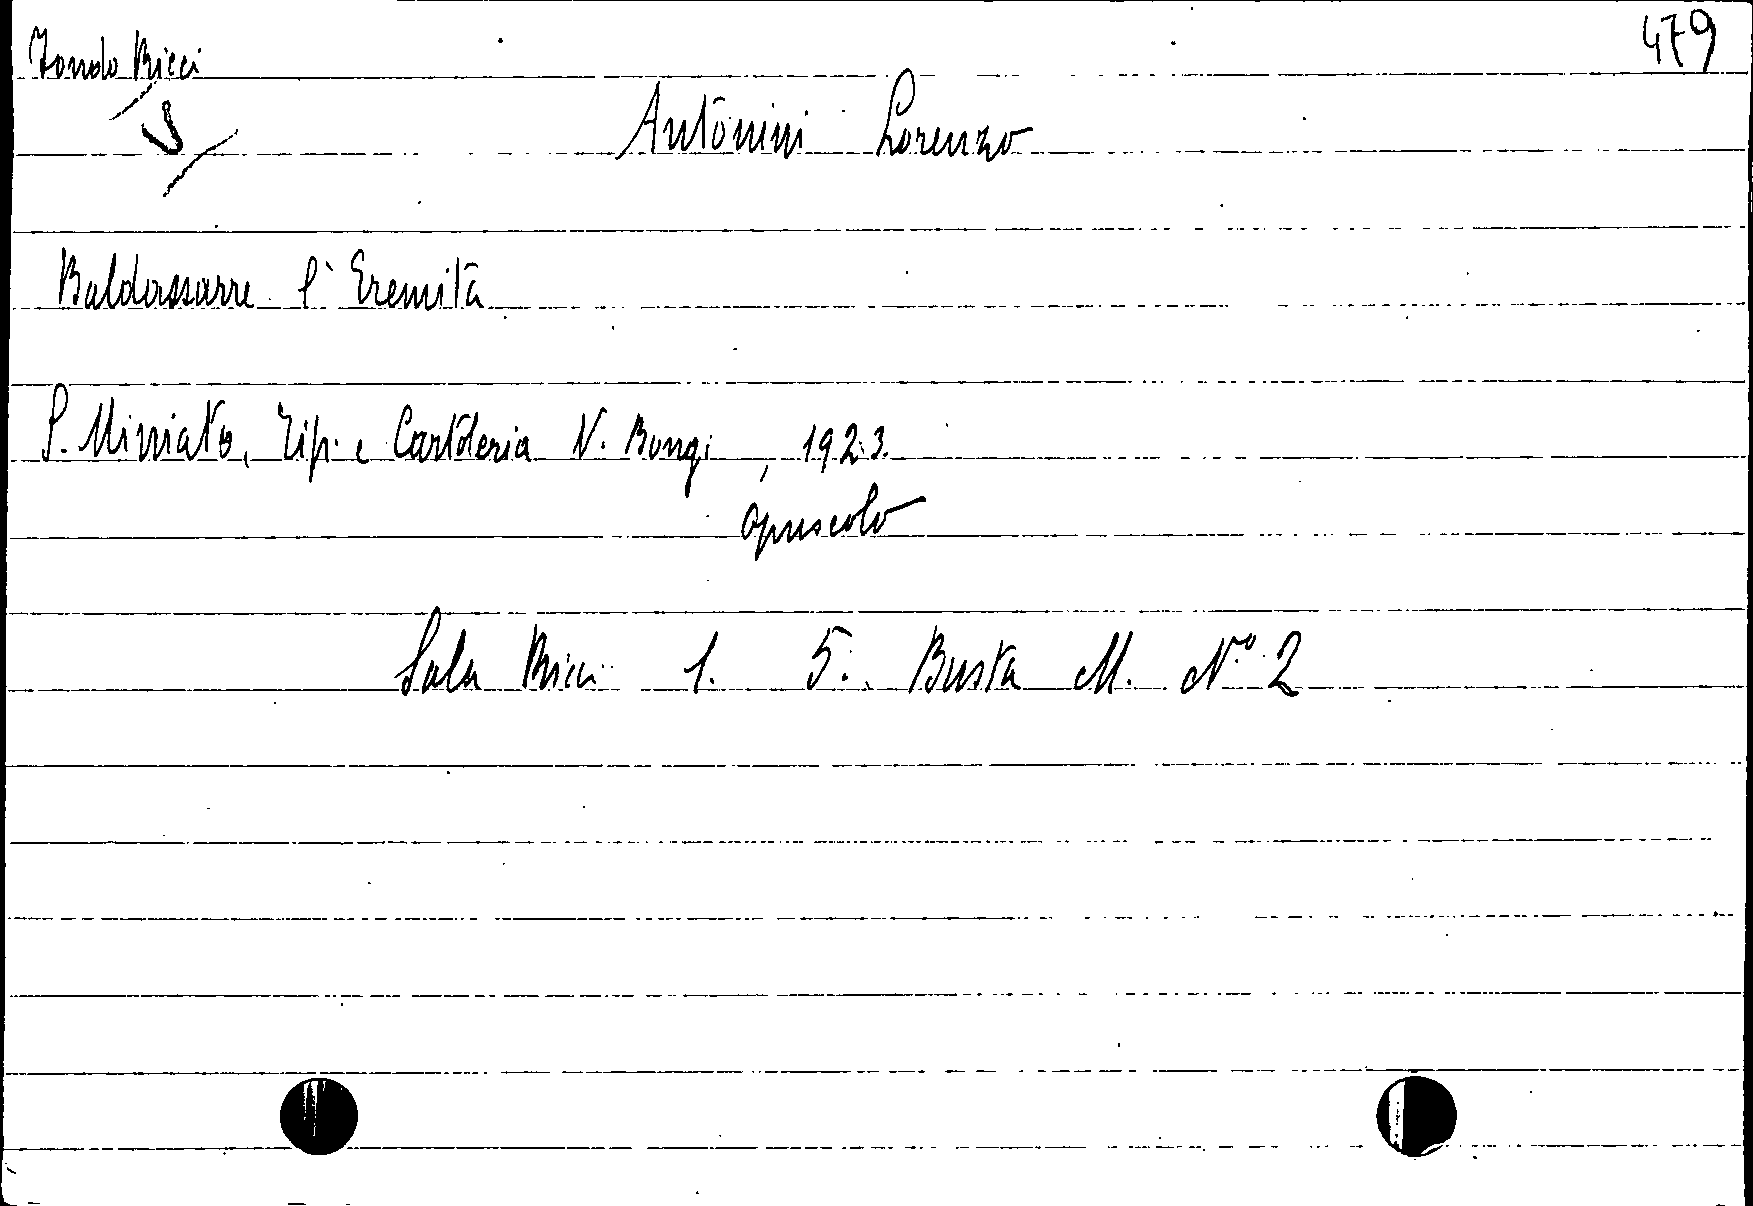 Fondo Ricci
479
V
Antonini Lorenzo
Baldassarre l'Eremita
S. Miniato, Tip. e Cartoleria V. Bongi, 1923.
opuscolo
Sala Ricci 1. 5. Busta M. N° 2